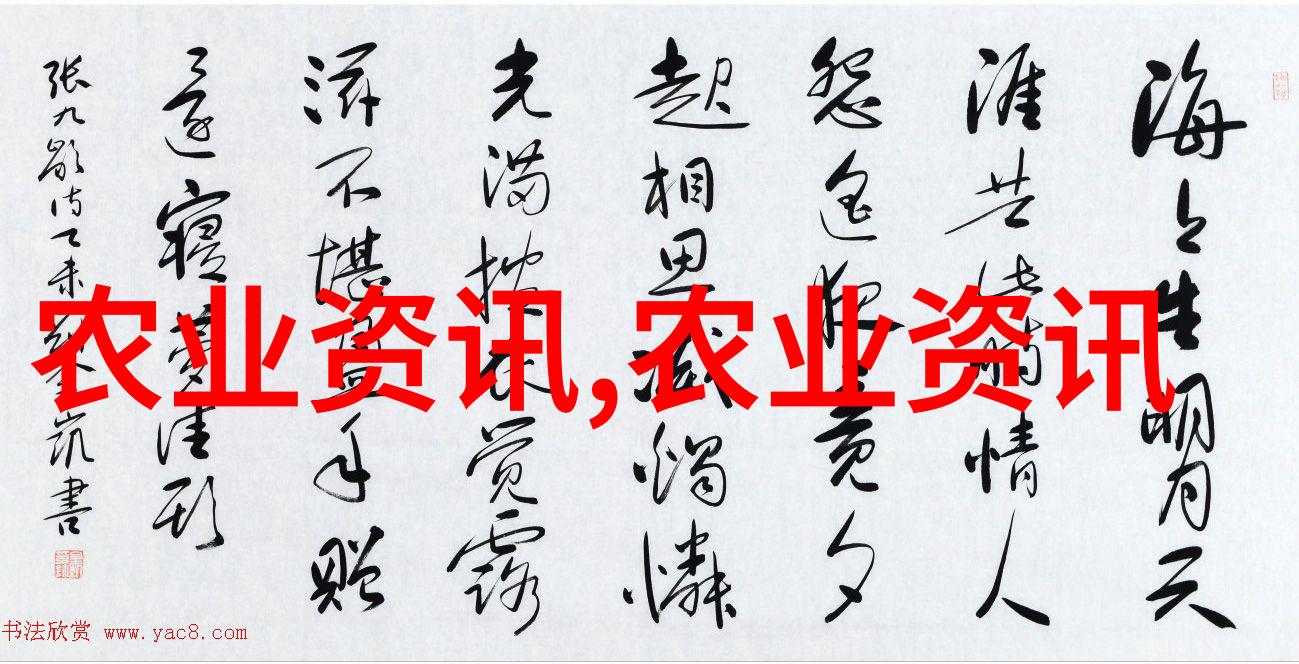 海上生明月天
涯共此時情人
怨遥夜竟夕
起相思滅燭憐
光满披衣觉露
滋不堪盈手赠
還寝夢佳期
张九龄诗乙未凯書
农业资讯,农业资讯
书法欣赏 www.yac8.com